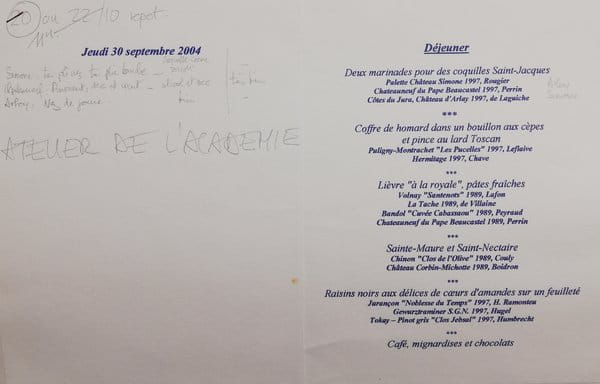 20 au 22/10 repot
Jeudi 30 septembre 2004
Simone
ATELIER DE L'ACADEMIE
Déjeuner
Deux marinades pour des coquilles Saint-Jacques
Palette Château Simone 1997, Rougier
Chateauneuf du Pape Beaucastel 1997, Perrin
Côtes du Jura, Château d'Arlay 1997, de Laguiche
Arlay
Simone
***
Coffre de homard dans un bouillon aux cèpes
et pince au lard Toscan
Puligny-Montrachet "Les Pucelles" 1997, Leflaive
Hermitage 1997, Chave
***
Lièvre "à la royale", pâtes fraîches
Volnay "Santenots" 1989, Lafon
La Tache 1989, de Villaine
Bandol "Cuvée Cabassaou" 1989, Peyraud
Chateauneuf du Pape Beaucastel 1989, Perrin
***
Sainte-Maure et Saint-Nectaire
Chinon "Clos de l'Olive" 1989, Couly
Château Corbin-Michotte 1989, Boidron
***
Raisins noirs aux délices de cœurs d'amandes sur un feuilleté
Jurançon "Noblesse du Temps" 1997, H. Ramonteu
Gewurztraminer S.G.N. 1997, Hugel
Tokay – Pinot gris "Clos Jebsal" 1997, Humbrecht
***
Café, mignardises et chocolats